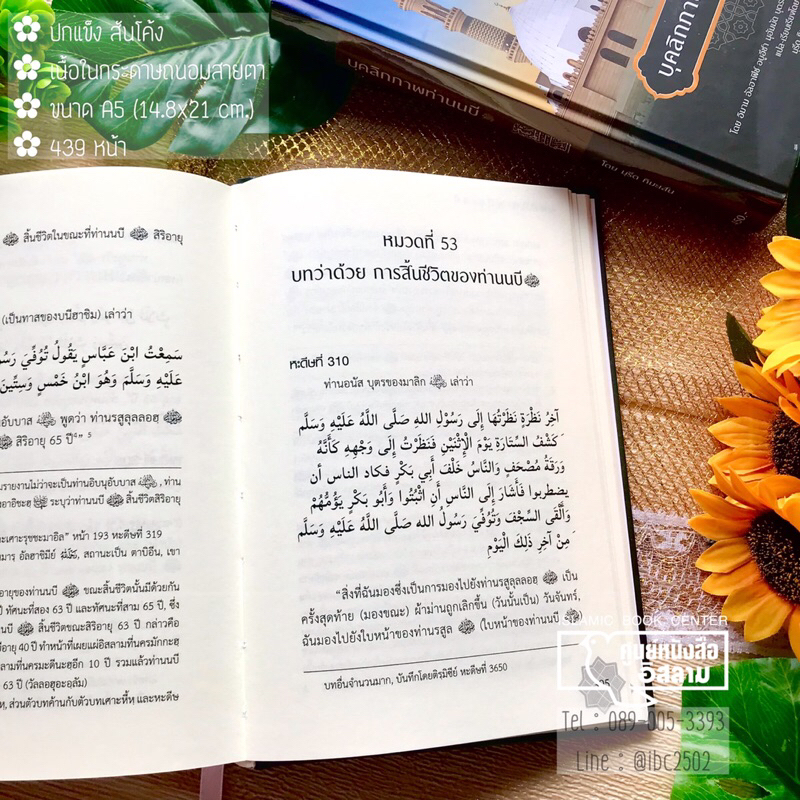 ปกแข็ง สันโค้ง
เนื้อในกระดาษถนอมสายตา
ขนาด A5 (14.8x21 cm.)
439 หน้า
บุคลิกภาพท่านนบี
โดย
สิ้นชีวิตในขณะที่ท่านนบี ﷺ สิริอายุ
(เป็นทาสของบนีฮาชิม) เล่าว่า
سَمِعْتُ ابْنَ عَبَّاسٍ يَقُولُ تُوُفِّيَ
عَلَيْهِ وَسَلَّمَ وَهُوَ ابْنُ خَمْسٍ وَسِتِّينَ
พูดว่า ท่านรสูลุลลอฮฺ ﷺ
ﷺ สิริอายุ 65 ปี
ท่าน
ระบุว่าท่านนบี ﷺ สิ้นชีวิตสิริอายุ
หน้า 193 หะดีษที่ 319
สถานะเป็น ตาบิอีน, เขา
อายุของท่านนบี ﷺ ขณะสิ้นชีวิตนั้นมีด้วยกัน
ปี ทัศนะที่สอง 63 ปี และทัศนะที่สาม 65 ปี, ซึ่ง
ﷺ สิ้นชีวิตขณะสิริอายุ 63 ปี กล่าวคือ
อายุ 40 ปี ทำหน้าที่เผยแผ่อิสลามที่นครมักกะฮ
ที่นครมะดีนะฮฺอีก 10 ปี รวมแล้วท่านนบี
63 ปี (วัลลอฮุอะอฺลัม)
ส่วนตัวบทค้านกับตัวบทเศาะหี้หฺ และหะดีษ
หมวดที่ 53
บทว่าด้วย การสิ้นชีวิตของท่านนบี ﷺ
หะดีษที่ 310
ท่านอนัส บุตรของมาลิก เล่าว่า
آخِرُ نَظْرَةٍ نَظَرْتُهَا إِلَى رَسُوْلِ اللهِ صَلَّى اللَّهُ عَلَيْهِ وَسَلَّمَ
كَشْفُ السِّتَارَةِ يَوْمَ الْإِثْنَيْنِ فَنَظَرْتُ إِلَى وَجْهِهِ كَأَنَّهُ
وَرَقَةُ مُصْحَفٍ وَالنَّاسُ خَلْفَ أَبِي بَكْرٍ فكاد الناس أن
يضطربوا فَأَشَارَ إِلَى النَّاسِ أَنِ اثْبُتُوا وَأَبُو بَكْرٍ يَؤُمُّهُمْ
وَأَلْقَى السِّجْفَ وَتُوُفِّيَ رَسُولُ الله صَلَّى اللَّهُ عَلَيْهِ وَسَلَّمَ
مِنْ آخِرِ ذَلِكَ الْيَوْمِ
“สิ่งที่ฉันมองซึ่งเป็นการมองไปยังท่านรสูลุลลอฮฺ ﷺ เป็น
ครั้งสุดท้าย (มองขณะ) ผ้าม่านถูกเลิกขึ้น (วันนั้นเป็น) วันจันทร์,
ฉันมองไปยังใบหน้าของท่านรสูล ﷺ (ใบหน้าของท่านนบี
บทอื่นจำนวนมาก, บันทึกโดยติรฺมิซีย์ หะดีษที่ 3650
ISLAMIC BOOK CENTER
ศูนย์หนังสือ
อิสลาม
Tel : 089-005-3393
Line : @ibc2502